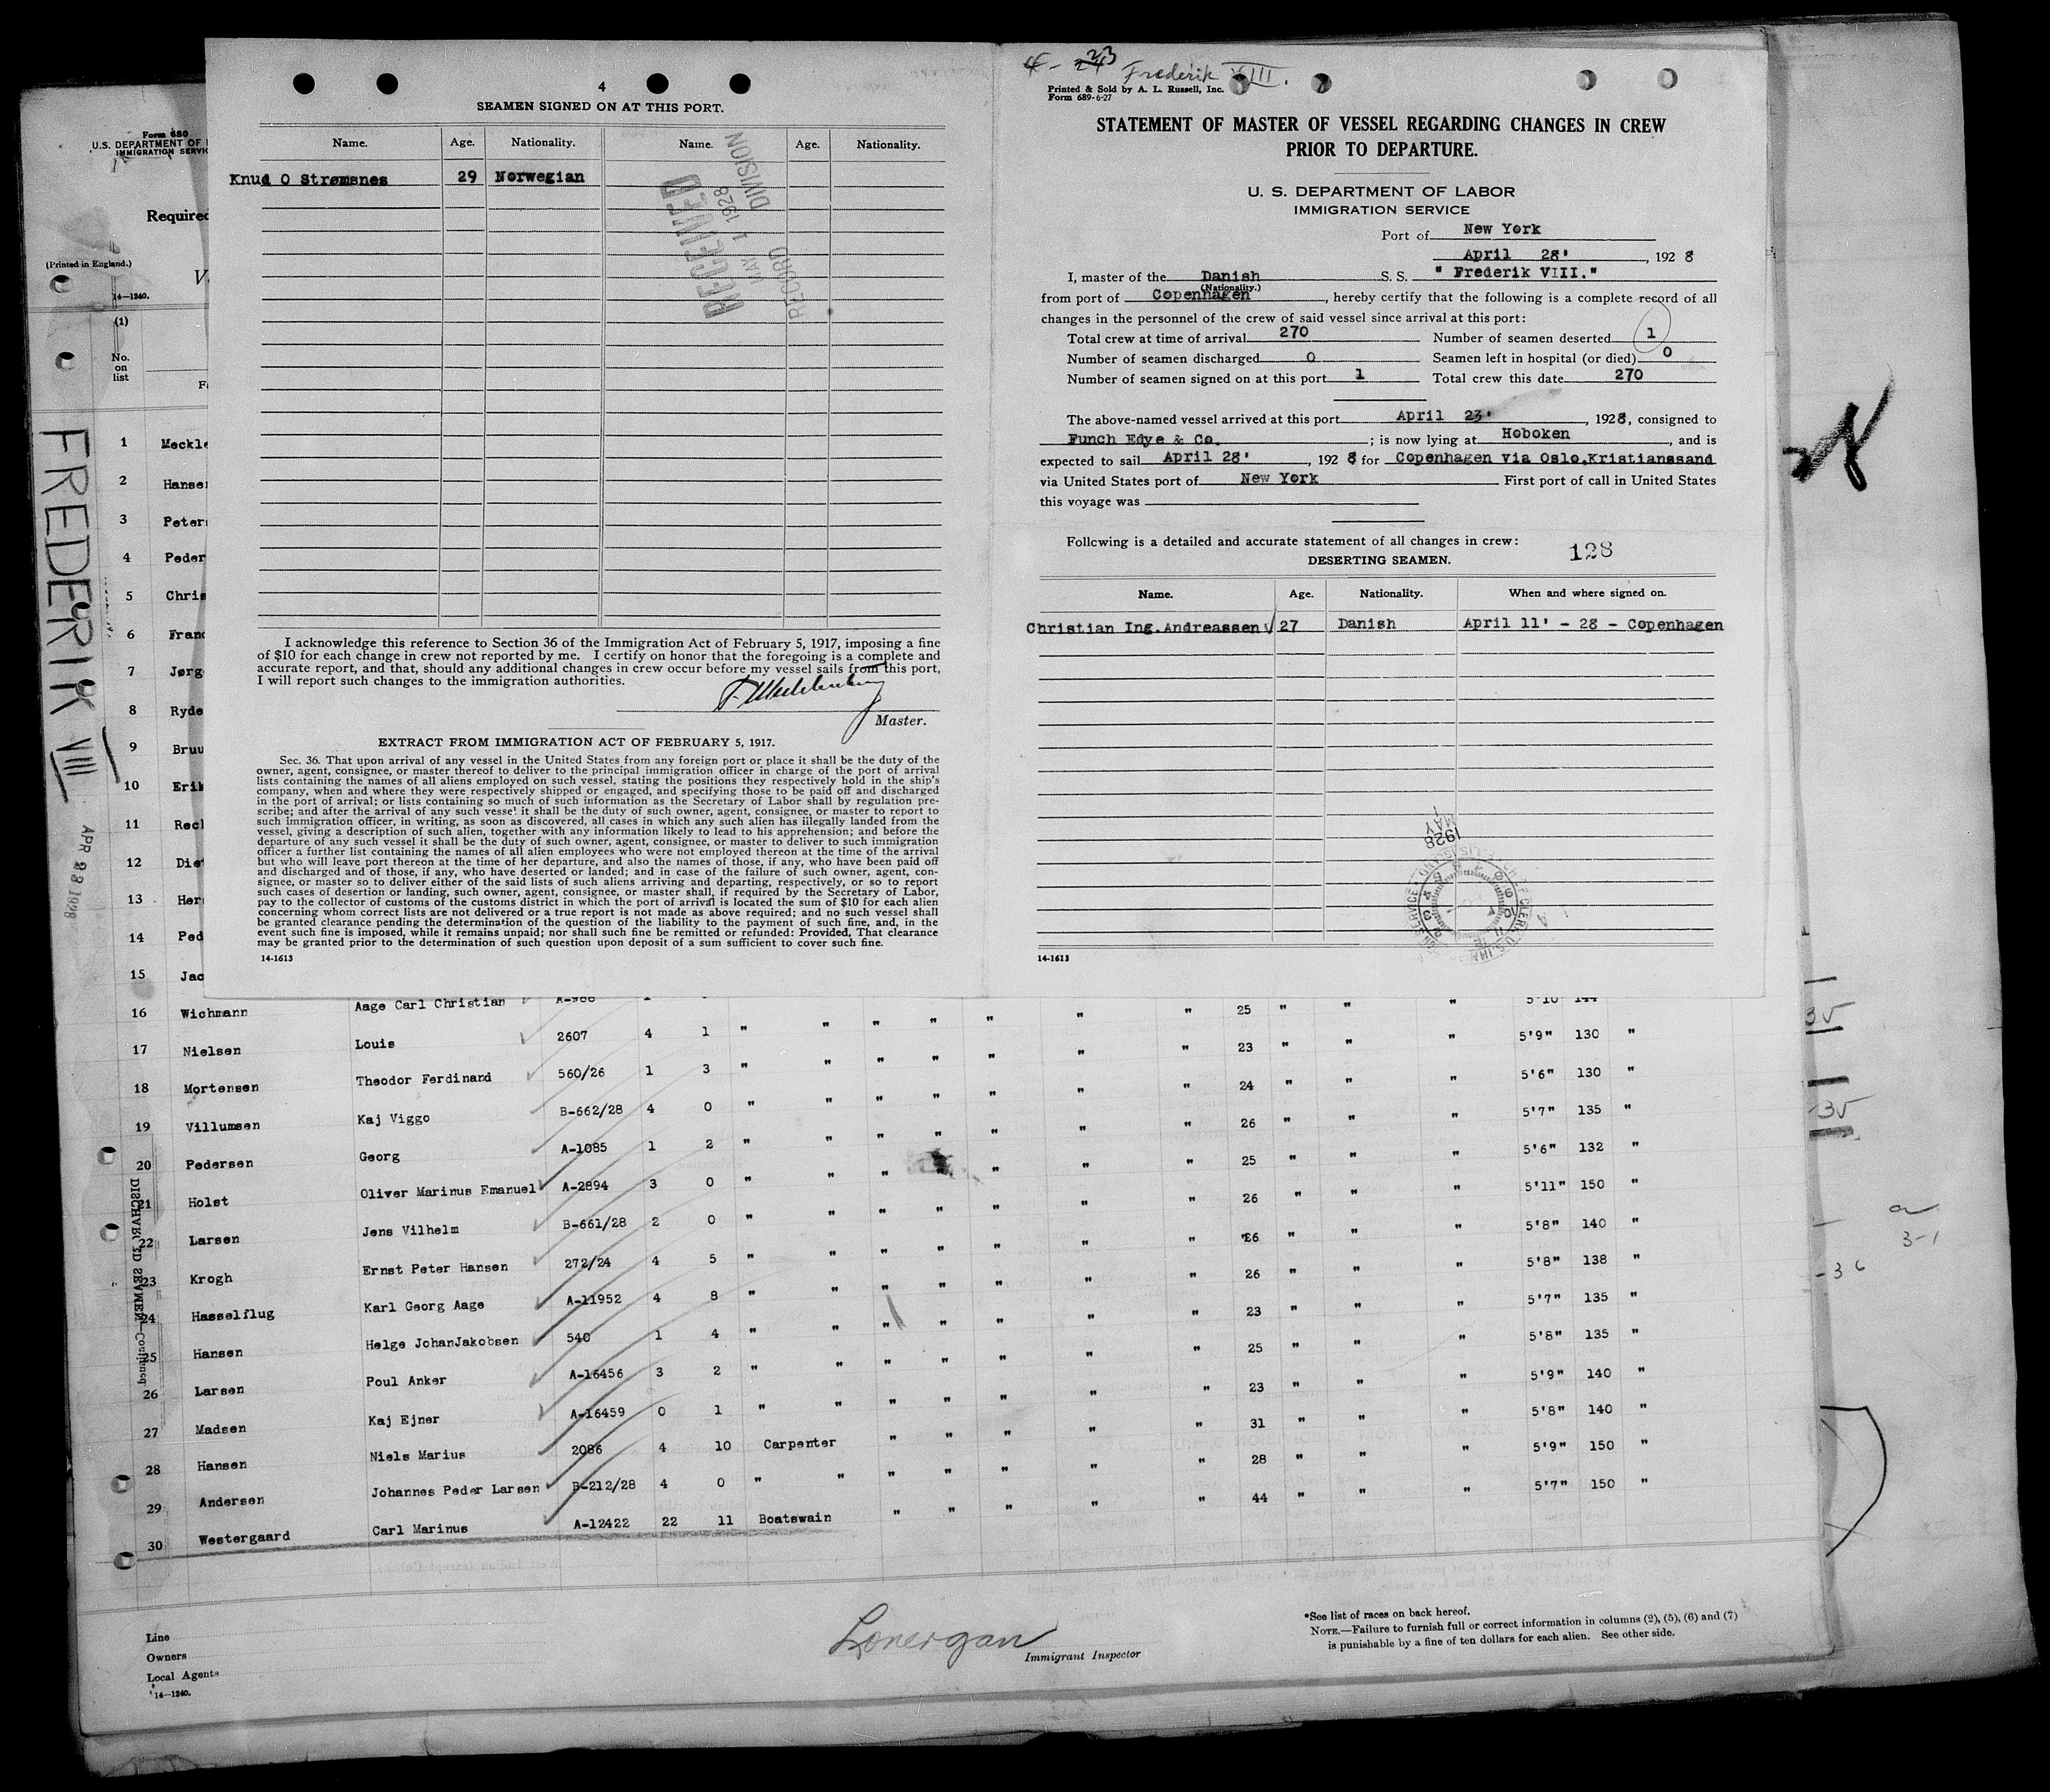 4
SEAMEN SIGNED ON AT THIS PORT.
Name. Age. Nationality. Name. Age. Nationality.
Knud O Strømsnes 29 Norwegian
RECEIVED
MAY 1 1928
RECORD DIVISION
I acknowledge this reference to Section 36 of the Immigration Act of February 5, 1917, imposing a fine
of $10 for each change in crew not reported by me. I certify on honor that the foregoing is a complete and
accurate report, and that, should any additional changes in crew occur before my vessel sails from this port,
I will report such changes to the immigration authorities.
Master.
EXTRACT FROM IMMIGRATION ACT OF FEBRUARY 5, 1917.
Sec. 36. That upon arrival of any vessel in the United States from any foreign port or place it shall be the duty of the
owner, agent, consignee, or master thereof to deliver to the principal immigration officer in charge of the port of arrival
lists containing the names of all aliens employed on such vessel, stating the positions they respectively hold in the ship's
company, when and where they were respectively shipped or engaged, and specifying those to be paid off and discharged
in the port of arrival; or lists containing so much of such information as the Secretary of Labor shall by regulation pre-
scribe; and after the arrival of any such vessel it shall be the duty of such owner, agent, consignee, or master to report to
such immigration officer, in writing, as soon as discovered, all cases in which any such alien has illegally landed from the
vessel, giving a description of such alien, together with any information likely to lead to his apprehension; and before the
departure of any such vessel it shall be the duty of such owner, agent, consignee, or master to deliver to such immigration
officer a further list containing the names of all alien employees who were not employed thereon at the time of the arrival
but who will leave port thereon at the time of her departure, and also the names of those, if any, who have been paid off
and discharged and of those, if any, who have deserted or landed; and in case of the failure of such owner, agent, con-
signee, or master so to deliver either of the said lists of such aliens arriving and departing, respectively, or so to report
such cases of desertion or landing, such owner, agent, consignee, or master shall, if required by the Secretary of Labor,
pay to the collector of customs of the customs district in which the port of arrival is located the sum of $10 for each alien
concerning whom correct lists are not delivered or a true report is not made as above required; and no such vessel shall
be granted clearance pending the determination of the question of the liability to the payment of such fine, and, in the
event such fine is imposed, while it remains unpaid; nor shall such fine be remitted or refunded: Provided, That clearance
may be granted prior to the determination of such question upon deposit of a sum sufficient to cover such fine.
14-1613
Frederik VIII.
Printed & Sold by A. L. Russell, Inc.
Form 689-6-27
STATEMENT OF MASTER OF VESSEL REGARDING CHANGES IN CREW
PRIOR TO DEPARTURE.
U. S. DEPARTMENT OF LABOR
IMMIGRATION SERVICE
Port of New York
April 28' , 192 8
I, master of the Danish S. S. " Frederik VIII."
(Nationality.)
from port of Copenhagen , hereby certify that the following is a complete record of all
changes in the personnel of the crew of said vessel since arrival at this port:
Total crew at time of arrival 270 Number of seamen deserted 1
Number of seamen discharged 0 Seamen left in hospital (or died) 0
Number of seamen signed on at this port 1 Total crew this date 270
The above-named vessel arrived at this port April 23' , 1928, consigned to
Funch Edye & Co. ; is now lying at Hoboken , and is
expected to sail April 28' , 192 8 for Copenhagen via Oslo,Kristianssand
via United States port of New York First port of call in United States
this voyage was
Following is a detailed and accurate statement of all changes in crew:
128
DESERTING SEAMEN.
Name. Age. Nationality. When and where signed on.
Christian Ing.Andreassen 27 Danish April 11' - 28 - Copenhagen
1928
MAY
14-1613
Form 680
U.S. DEPARTMENT OF
IMMIGRATION SERVIC
Required
(Printed in England.)
14-1240.
(1)
No.
on
list
FREDERIK VIII
APR 23 1928
1 Meckle
2 Hanse
3 Peter
4 Peder
5 Chris
6 Franc
7 Jørg
8 Ryde
9 Bruu
10 Erik
11 Rech
12 Diet
13 Her
14 Ped
15 Jac
16 Wichmann Aage Carl Christian A-988 25 " " " 5'10 144
17 Nielsen Louis 2607 4 1 " " " " " " " 23 " " " 5'9" 130 "
18 Mortensen Theodor Ferdinand 560/26 1 3 " " " " " " " 24 " " " 5'6" 130 "
19 Villumsen Kaj Viggo B-662/28 4 0 " " " " " " " 26 " " " 5'7" 135 "
20 Pedersen Georg A-1085 1 2 " " " " " " " 25 " " " 5'6" 132 "
21 Holst Oliver Marinus Emanuel A-2894 3 0 " " " " " " 26 " " " 5'11" 150 "
22 Larsen Jens Vilhelm B-661/28 2 0 " " " " " " " 26 " " " 5'8" 140 "
23 Krogh Ernst Peter Hansen 272/24 4 5 " " " " " " " 26 " " " 5'8" 138 "
24 Hasselflug Karl Georg Aage A-11952 4 8 " " " " " " " 23 " " " 5'7" 135 "
25 Hansen Helge JohanJakobsen 540 1 4 " " " " " " " 25 " " " 5'8" 135 "
26 Larsen Poul Anker A-16456 3 2 " " " " " " " 23 " " " 5'9" 140 "
27 Madsen Kaj Ejner A-16459 0 1 " " " " " " 31 " " " 5'8" 140 "
28 Hansen Niels Marius 2086 4 10 Carpenter " " " " " 28 " " " 5'9" 150 "
29 Andersen Johannes Peder Larsen B-212/28 4 0 " " " " " " " 44 " " " 5'7" 150 "
30 Westergaard Carl Marinus A-12422 22 11 Boatswain " " "
DISCHARGED SEAMEN—Continued
Line
Owners
Local Agents
14-1240.
Lonergan
Immigrant Inspector
*See list of races on back hereof.
NOTE.—Failure to furnish full or correct information in columns (2), (5), (6) and (7)
is punishable by a fine of ten dollars for each alien. See other side.
35
35
-36
3-1